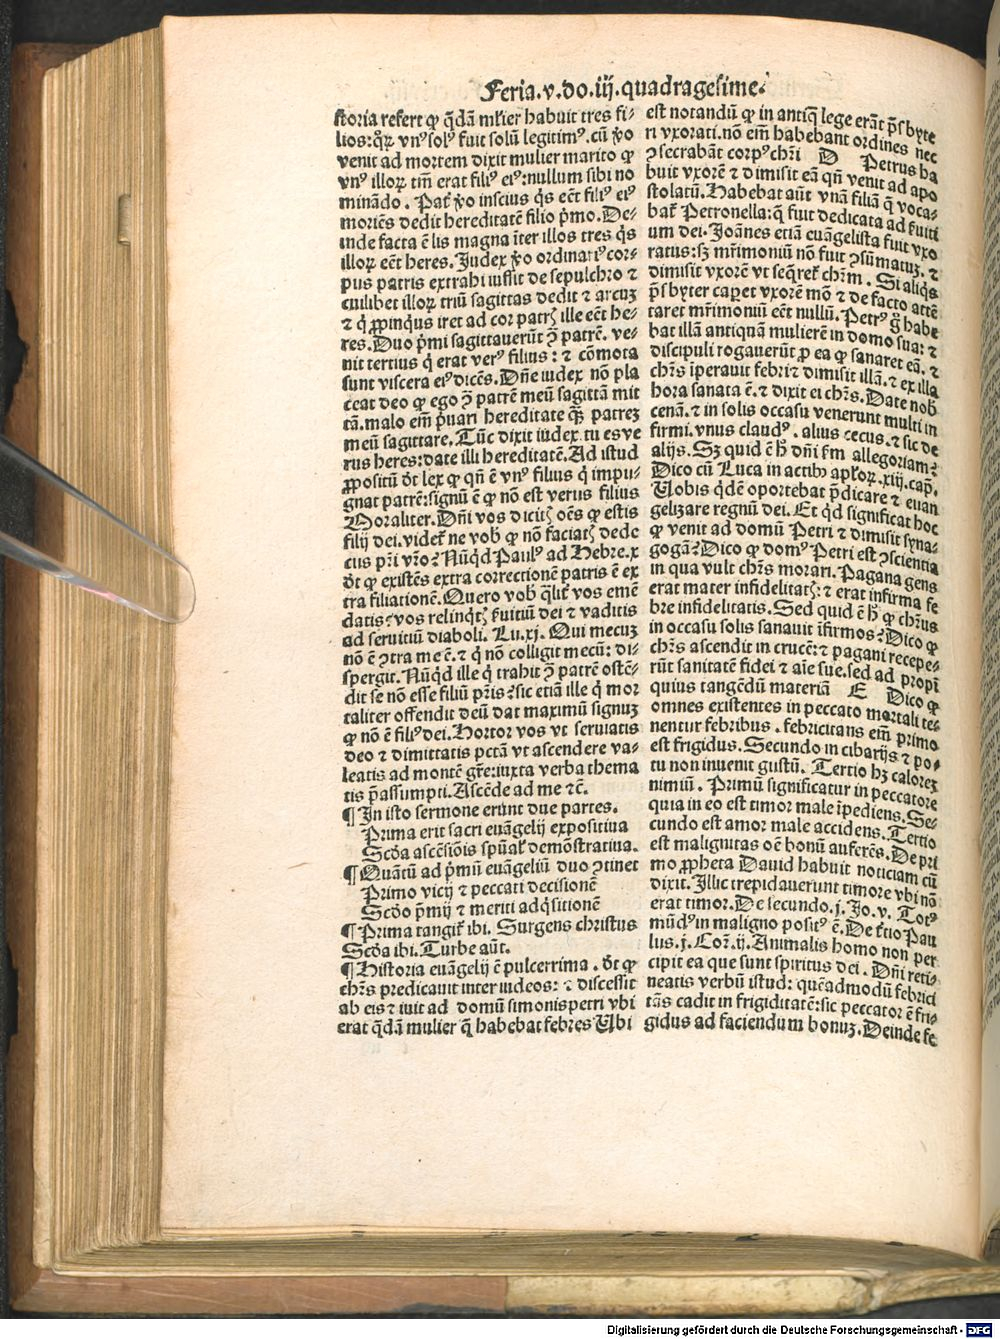 Feria.v.do.iij.quadragesime.
storia refert ꝙ q̄dā ml̓ier habuit tres fi-
lios:qꝝ vnꝰ solꝰ fuit solū legitimꝰ.cū ꝟo
venit ad mortem dixit mulier marito ꝙ
vnꝰ illoꝝ tm̄ erat filiꝰ eiꝰ:nullum sibi no
minādo. Pat̓ ꝟo inscius q̇s eēt filiꝰ eiꝰ
moriēs dedit hereditatē filio p̓mo. De-
inde facta ē lis magna īter illos tres q̇s
illoꝝ eēt heres. Iudex ꝟo ordinariꝰ cor-
pus patris extrahi iussit de sepulchro ⁊
cuilibet illoꝝ triū sagittas dedit ⁊ arcuꝫ
⁊ q̇ ꝓpinq̇us iret ad cor patrꝭ ille eēt he-
res. Duo p̓mi sagittauerūt ꝯ̄ patrē. ve-
nit tertius q̇ erat verꝰ filius: ⁊ cōmota
sunt viscera eiꝰ dicēs. Dn̄e iudex nō pla
ceat deo ꝙ ego ꝯ̄ patrē meū sagittā mit
tā.malo em̄ p̓uari hereditate qꝫ̄ patreꝫ
meū sagittare. Tūc dixit iudex. tu es ve
rus heres:date illi hereditatē. Ad istud
ꝓpositū d̄t lex ꝙ qn̄ ē vnꝰ filius q̇ impu-
gnat patrē:signū ē ꝙ nō est verus filius
Moraliter. Dn̄i vos dicitꝭ oēs ꝙ estis
filij dei.videt̓ ne vob̓ ꝙ nō faciatꝭ dede
cus pr̄i vr̄o? Nūqd̓ Paulꝰ ad Hebre.x
d̄t ꝙ existēs extra correctionē patris ē ex
tra filiationē. Quero vob̓ q̓lit̓ vos emē
datis?vos relinqtꝭ s̓uitiū dei ⁊ vaditis
ad seruitiū diaboli. Lu.xj. Qui mecuꝫ
nō ē ꝯtra me ē.⁊ q̇ nō colligit mecū: di-
spergit. Nūqd̓ ille q̇ trahit ꝯ̄ patrē ostē-
dit se nō esse filiū pr̄is? sic etiā ille q̇ mor
taliter offendit deū dat maximū signuꝫ
ꝙ nō ē filiꝰ dei. Hortor vos vt seruiatis
deo ⁊ dimittatis pctā vt ascendere va-
leatis ad montē gr̄e:iuxta verba thema
tis p̄assumpti. Ascēde ad me ⁊c̄.
¶ In isto sermone erūnt due partes.
Prima erit sacri euāgelij expositiua
Scd̓a ascēsiōis spūal̓ demōstratiua.
¶ Quātū ad p̓mū euāgeliū duo ꝯtinet
Primo vicij ⁊ peccati decisionē
Scd̓o p̄mij ⁊ meriti adq̇sitionē
¶ Prima tangit̓ ibi. Surgens christus
Scd̓a ibi. Turbe aūt.
¶ Historia euāgelij ē pulcerrima. d̄t ꝙ
chr̄s predicauit inter iudeos: ⁊ discessit
ab eis ⁊ iuit ad domū simonis petri vbi
erat q̄dā mulier q̄ habebat febres Ubi
est notandū ꝙ in antiq̄ lege erāt p̄sbyte
ri vxorati.nō em̄ habebant ordines nec
ꝯsecrabāt corpꝰ chr̄i D Petrus ha
buit vxorē ⁊ dimisit eā qn̄ venit ad apo
stolatū. Habebat aūt vnā filiā q̄ voca-
bat̓ Petronella:q̄ fuit dedicata ad s̓uiti
um dei. Joānes etiā euāgelista fuit vxo
ratus:sꝫ mr̄imoniū nō fuit ꝯsūmatuꝫ. ⁊
dimisit vxorē vt seq̄ret̓ chr̄m. Si aliq̇s
p̄sbyter caꝑet vxorē mō ⁊ de facto attē
taret mr̄imoniū eēt nullū. Petrꝰ g̓ habe
bat illā antiquā mulierē in domo sua: ⁊
discipuli rogauerūt ꝓ ea ꝙ sanaret eā. ⁊
chr̄s īperauit febri ⁊ dimisit illā.⁊ ex illa
hora sanata ē.⁊ dixit ei chr̄s. Date nob̓
cenā.⁊ in solis occasu venerunt multi in
firmi.vnus claudꝰ. alius cecus.⁊ sic de
alijs. Sꝫ quid ē h̓ dn̄i s̄m allegoriam?
Dico cū Luca in actibꝰ apl̓oꝝ.xiij.cap̓.
Uobis q̇dē oportebat p̄dicare ⁊ euan
gelizare regnū dei. Et qd̓ significat hoc
ꝙ venit ad domū Petri ⁊ dimisit syna-
gogā? Dico ꝙ domꝰ Petri est ꝯscientia
in qua vult chr̄s morari. Pagana gens
erat mater infidelitatꝭ: ⁊ erat infirma fe
bre infidelitatis. Sed quid ē h̓ ꝙ chr̄us
in occasu solis sanauit īfirmos? Dico ꝙ
chr̄s ascendit in crucē:⁊ pagani recepe-
rūt sanitatē fidei ⁊ aīe sue.sed ad propi̓
quius tangēdū materiā E Dico ꝙ
omnes existentes in peccato mortali te-
nentur febribus. febricitans em̄ primo
est frigidus. Secundo in cibarijs ⁊ po-
tu non inuenit gustū. Tertio hꝫ calorez
nimiū. Primū significatur in peccatore
quia in eo est timor male īpediens. Se-
cundo est amor male accidens. Tertio
est malignitas oē bonū auferēs. De pri
mo ꝓpheta Dauid habuit noticiam cū
dixit. Illic trepidauerunt timore vbi nō
erat timor. De secundo.j. Jo.v. Totꝰ
mūdꝰ in maligno positꝰ ē. De t̓tio Pau
lus.j. Cor̄.ij. Animalis homo non per
cipit ea que sunt spiritus dei. Dn̄i reti-
neatis verbū istud: quēadmodū febrici
tās cadit in frigiditatē:sic peccator ē fri-
gidus ad faciendum bonuꝫ. Deinde fe
Digitalisierung gefördert durch die Deutsche Forschungsgemeinschaft - DFG